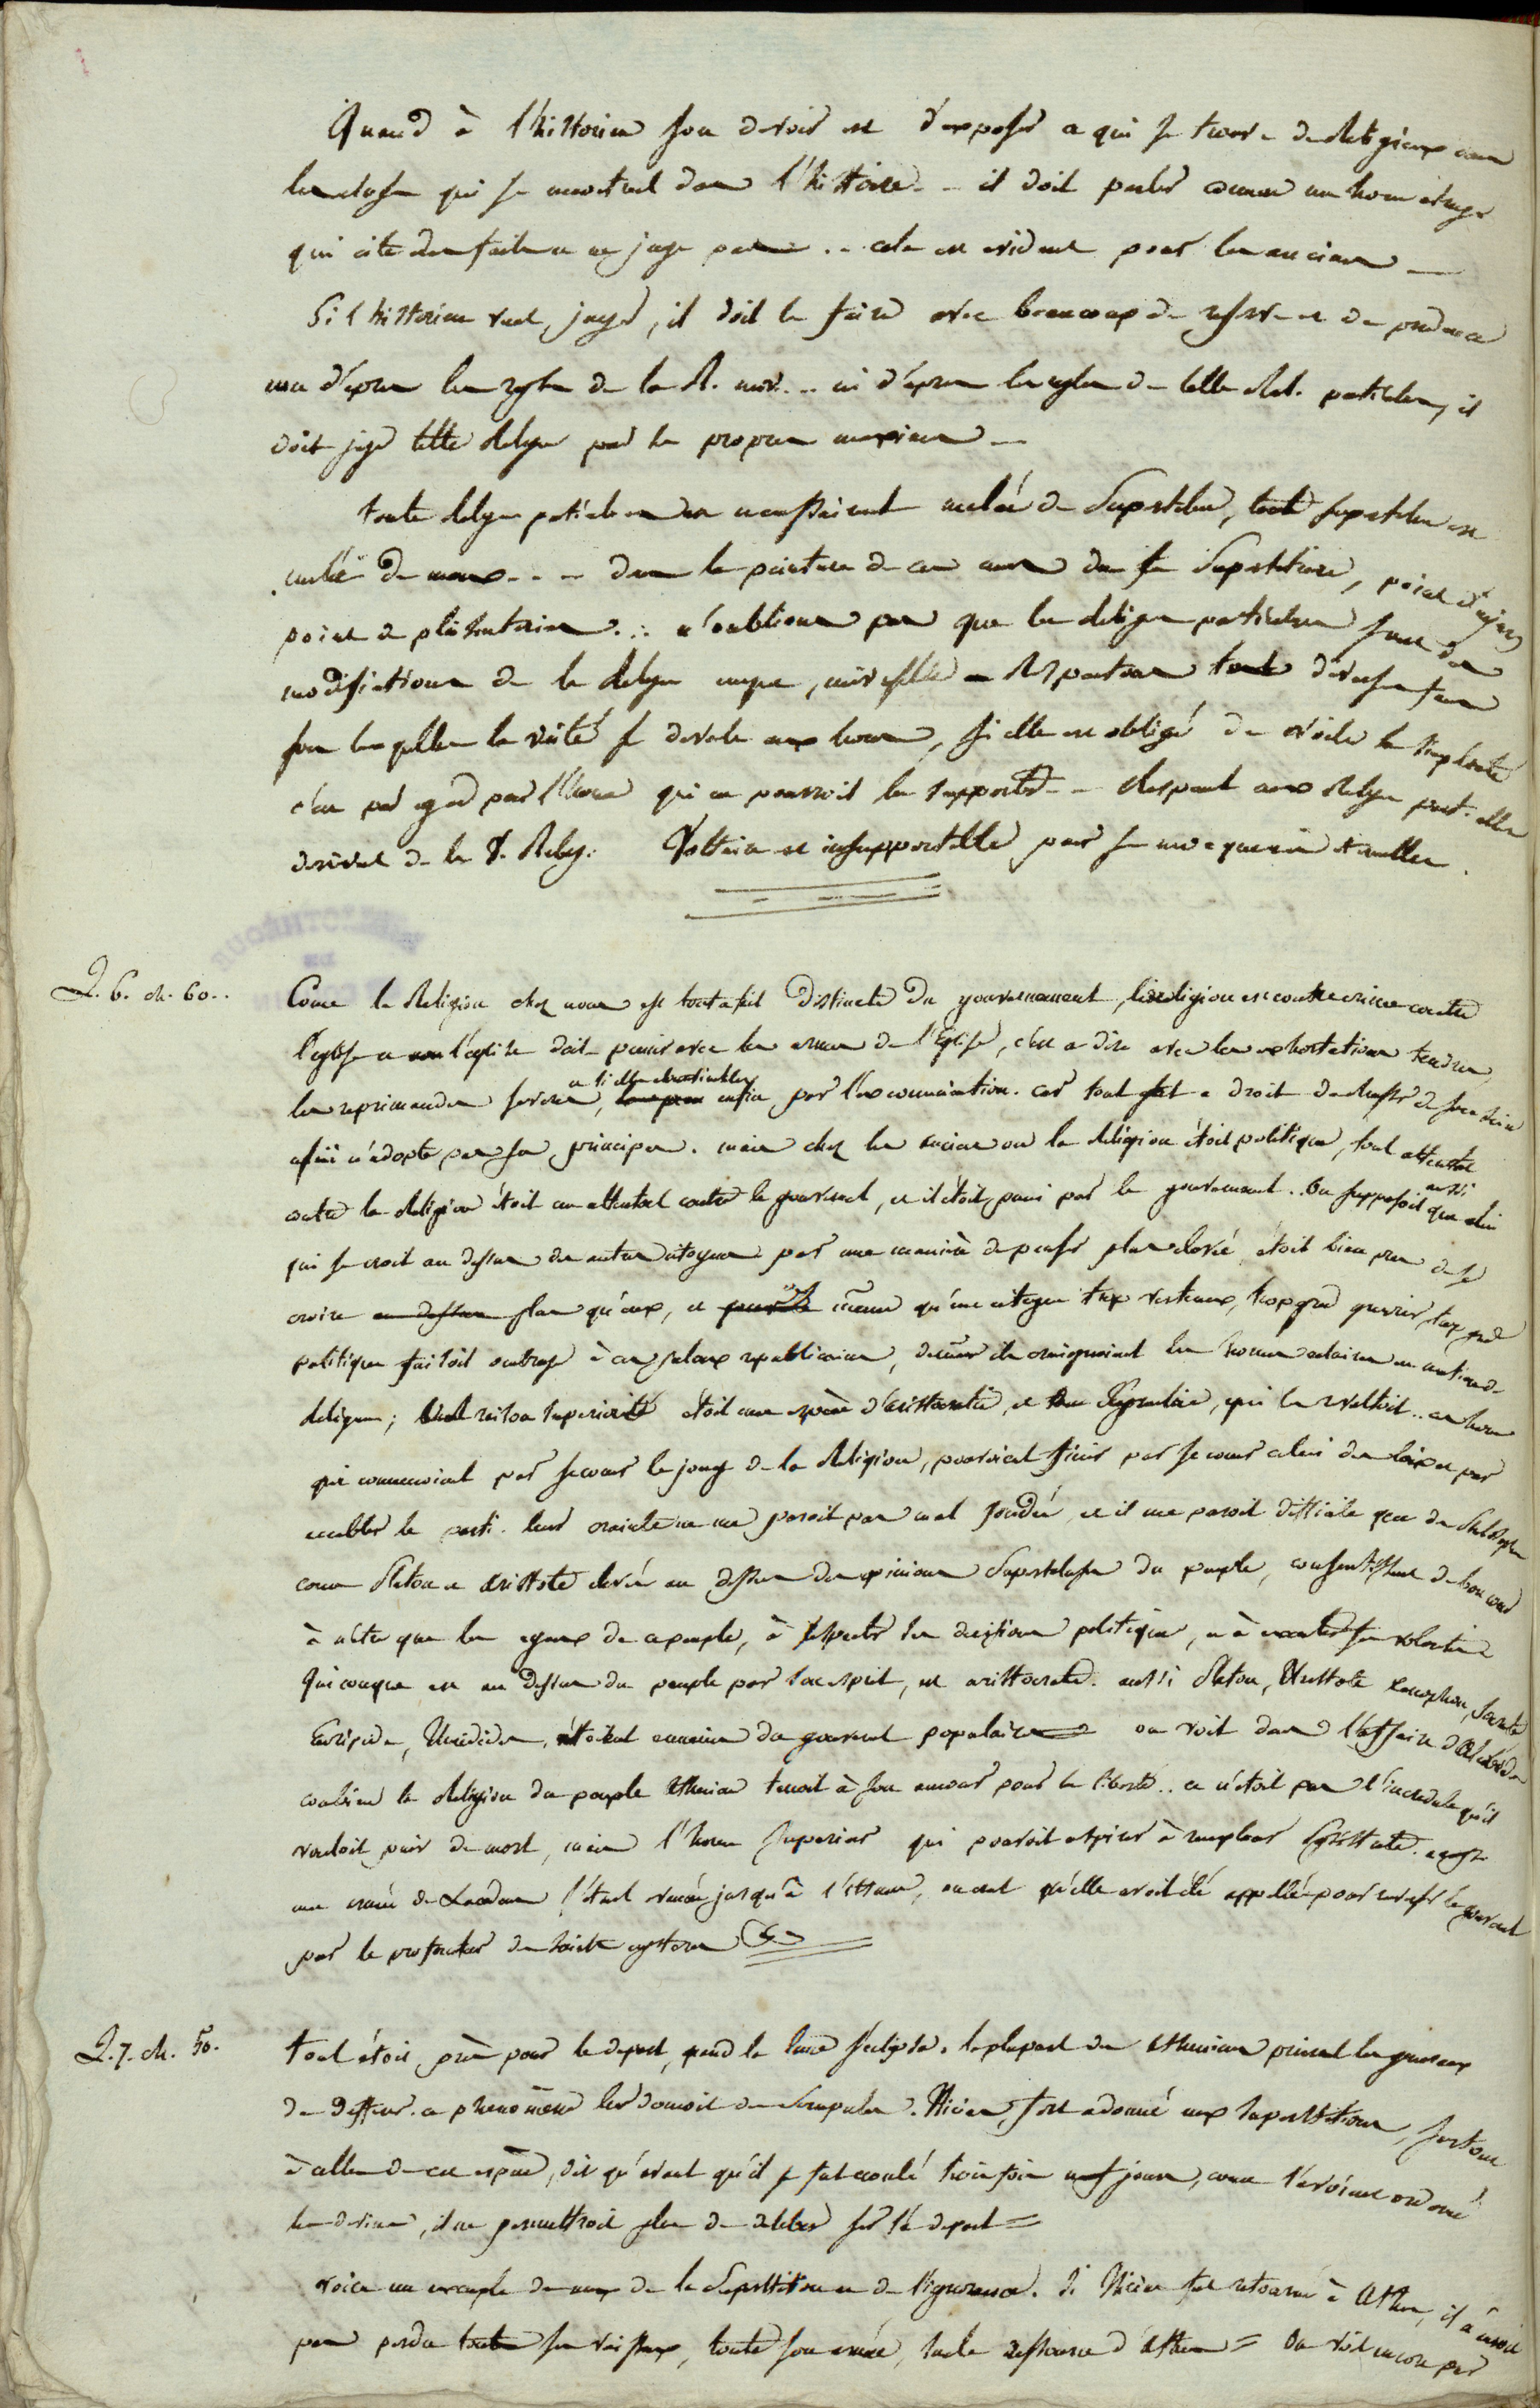 Quand à l'historien son devoir est d'exposer ce qui se trouve de Religieux dans
les choses qui se montrent dans l'histoire - - il doit parler comme un home
qui cite des faits et ne juge pas . - cela est evident pour les anciens —
Si l'historien veut juger, il doit le faire avec beaucoup de reserve et de prudence
non d'après les regles de la R. univ. - - ni d'après les regles de telle Rel. particuliere, il
doit juger telle Religion par ses propres maximes —
toute Religion particuliere est necessairement melée de Superstition, toute superstition est
melée de maux - - - dans la peinture de ces maux dus à la Superstition, point d'injures
point de plaisanteries .:. n'oublions pas que les Religions particulieres sont des
modifications de la Religion unique, universelle — Respectons toutes les diverses formes
sous lesquelles la vérité se devoile aux homes, si elle est obligée de voiler sa simplicité
c'est par egard pour l'home qui ne pourroit la supporter - - Respect aux Religions part. elles
derivent de la V. Relig. Voltaire est insupportable par ses moqueries eternelles.
L. 6. ch. 60..
Come la Religion chez nous est tout a fait distincte du gouvernement, l'irreligion est un crime contre
l'eglise et l'eglise doit punir avec les armes de l'Eglise, c'est a dire avec les exhortations tendres,
les reprimandes severes, et si elles sont inutiles enfin par l'excommunication. car tout a droit de chasser de son sein
celui qui n'adopte pas ses principes. mais chez les anciens ou la Religion étoit politique, tout attentat
contre la Religion étoit un attentat contre le gouvernement, et il étoit puni par le gouvernement. . On supposoit aussi que celui
qui se croit au dessus des autres citoyens par une manière de penser plus elevée étoit bien pres de se
croire plus qu'eux, et de même qu'un citoyen trop vertueux, trop grand guerrier, trop grand
politique faisoit ombrage à ces jaloux republicains, de même ils craignoient les homes eclairés en matiere de
Religion; leur raison superieure étoit une espèce d'aristocratie, et une , qui les revoltoit . . ces homes
qui commençoient par secouer le joug de la Religion, pouvoient finir par secouer celui des loix et par
accabler le parti. leur crainte ne me paroit pas mal fondée, et il me paroit difficile que des Philosophes
come Platon et Aristote elevés au dessus des opinions superstitieuses du peuple, consentissent de bon coeur
à n'etre que les egaux de ce peuple, à respecter ses decisions politiques, et à executer ses volontés
Quiconque est au dessus du peuple par son esprit, est aristocrate. aussi Platon, Aristote Xenophon, Socrate
Euripide, Thucidide, étoient ennemis du gouvernement populaire = on voit dans l'affaire d'Alcibiade
combien la Religion du peuple Athenien tenoit à son amour pour la liberté . . ce n'étoit pas l'incredule qu'il
vouloit punir de mort, mais l'home superieur qui pouvoit aspirer à remplacer Pisistrate.
une armée de Lacedem s'étant avancée jusqu'à l'isthme, on crut qu'elle avoit été appellée pour renverser le gouvernement
par le profanateur des saints mysteres
L. 7. ch. 50.
tout étoit prêt pour le depart, quand la lune s'eclipsa. la plupart des Atheniens prierent les generaux
de differer. ce phenomène leur donnoit des scrupules. Nicias, fort adonné aux superstitions, surtout
à celles de cette espèce, dit qu'avant qu'il se fut ecoulé trois fois neuf jours, come l'avoient ordonné
les devins, il ne permettroit plus de deliberer sur le depart =
voici un exemple des maux de la Superstition et de l'ignorance. Si Nicias fut retourné à Athenes, il n'auroit
pas perdu ses vaisseaux, toute son armée, seule ressource d'Athenes = On voit encore par